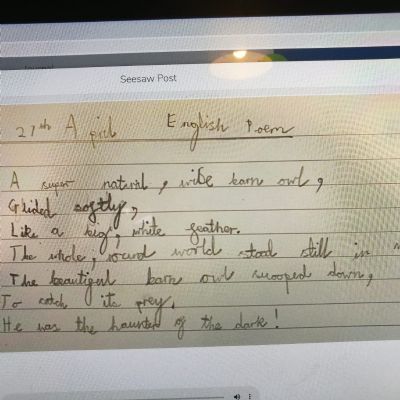 Journal
Seesaw Post
27th April English Poem
A super natural, wise barn owl,
Glided softly,
Like a big, white feather.
The whole, round world stood still in
The beautiful barn owl swooped down,
To catch its prey,
He was the haunter of the dark!